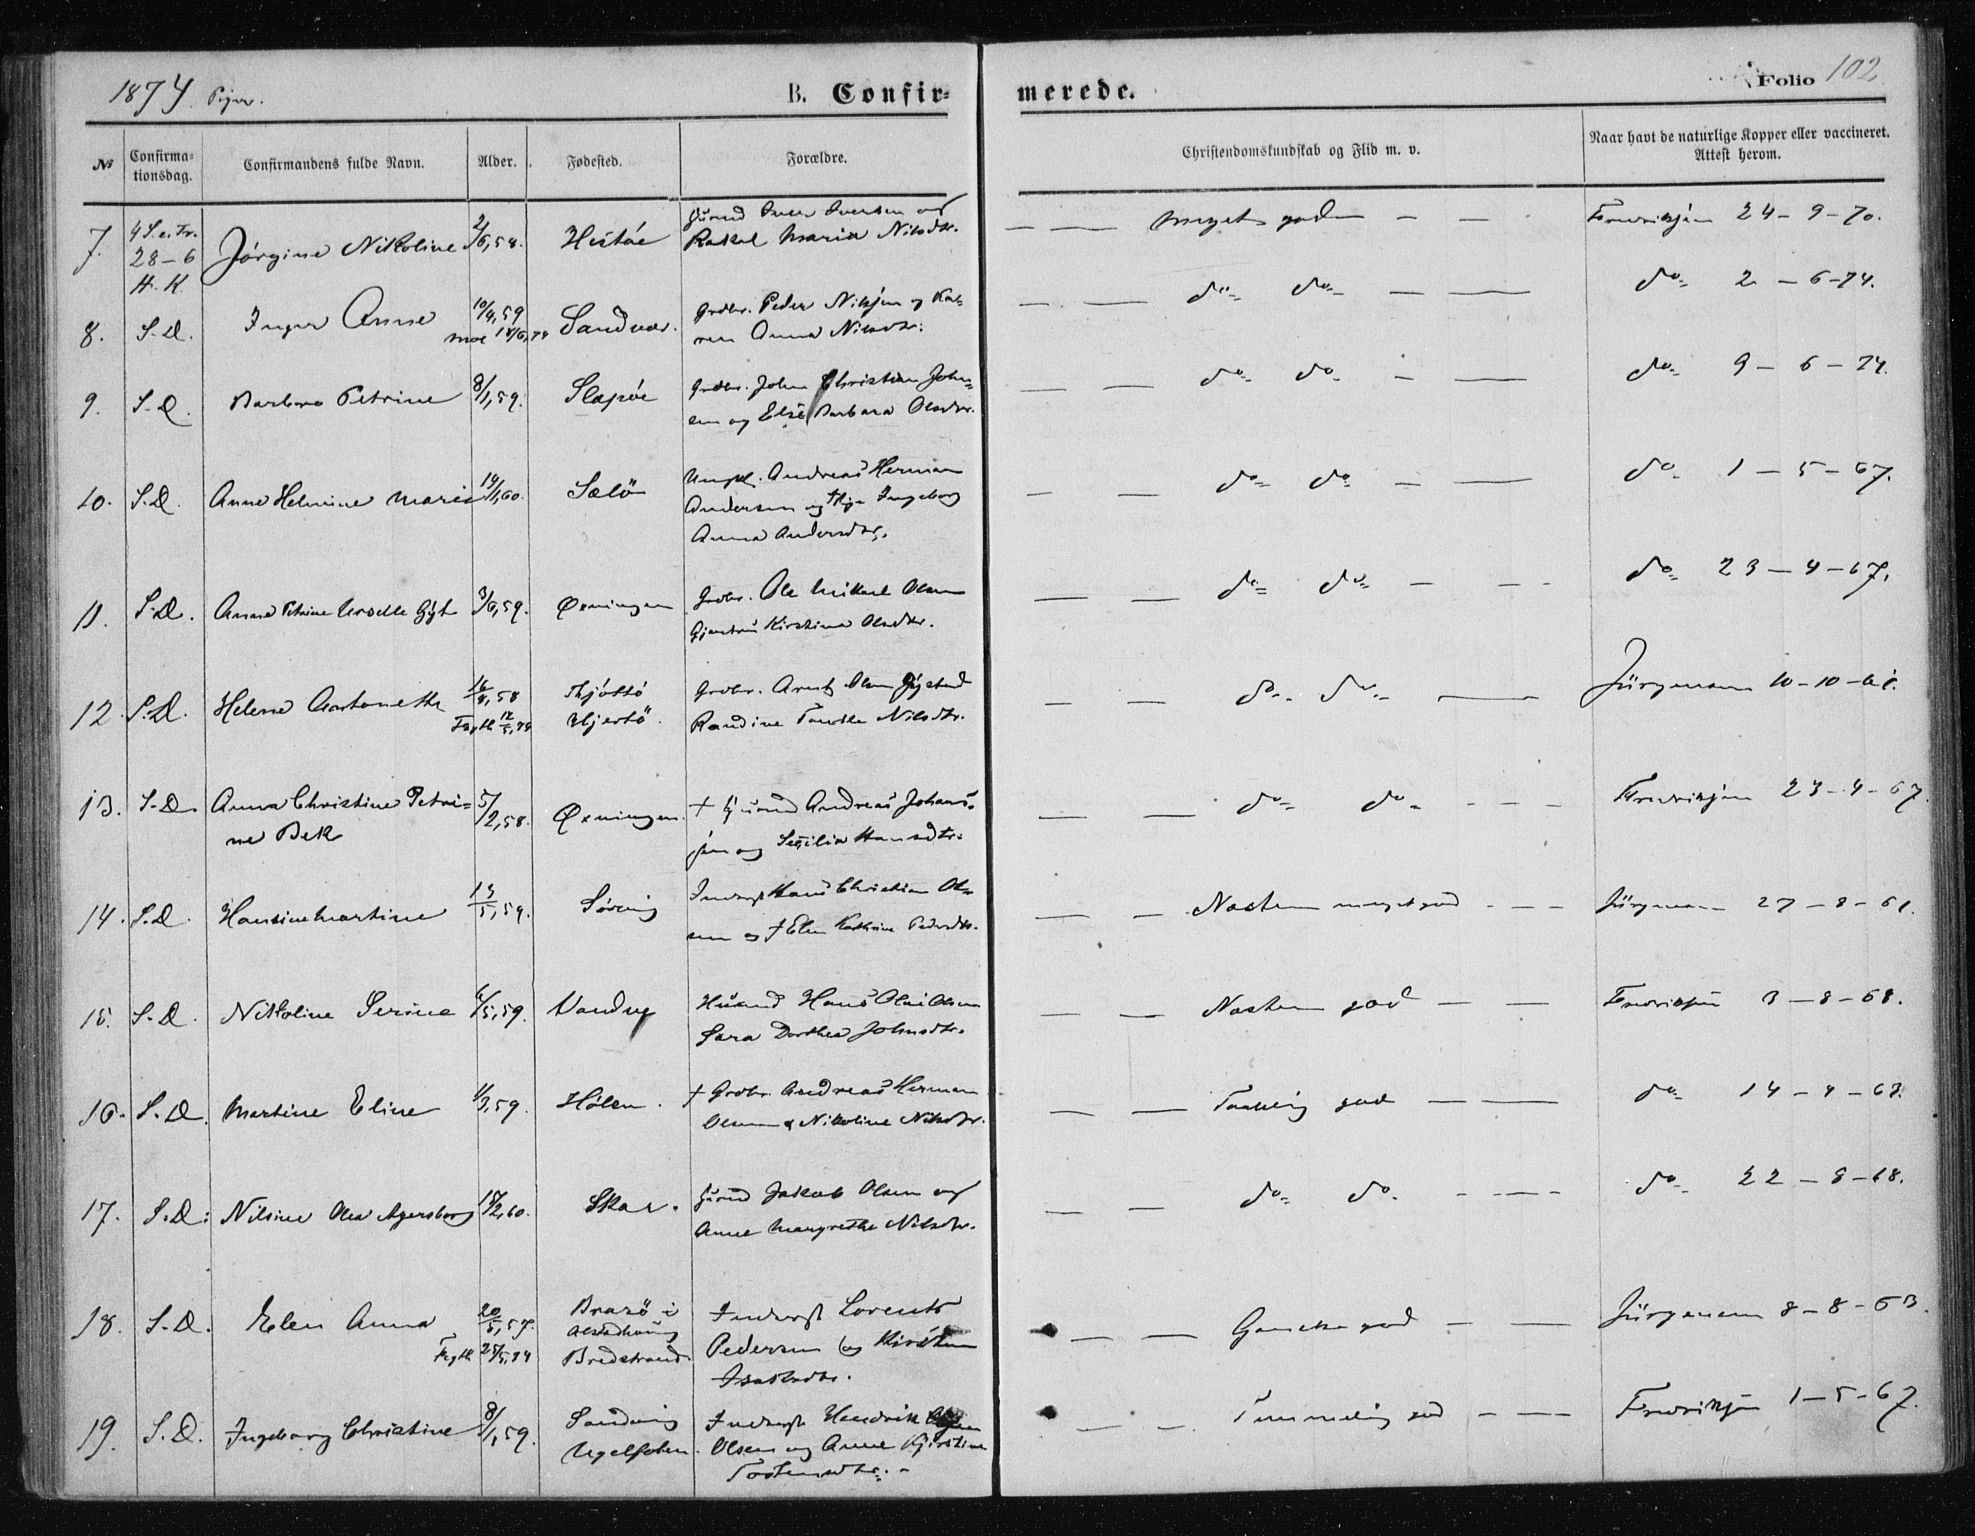 1874 Piger.
B. Confir=
merede.
Folio 102
№ Confirma=tionsdag. Confirmandens fulde Navn. Alder. Fødested. Forældre. Christendomskundskab og Flid m. v. Naar havt de naturlige Kopper eller vaccineret. Attest herom.
7. 4 S. e. Tr. 28-6 H. K Jørgine Nikoline Hestøe
Iver Iversen og
Rakel Maria Nilsdtr.
— — meget god — — Fredriksen 24-9-70.
8. S. D. Inger Anne 10/4,59 Sandvær.
Grdbr. Peder Nilsen og Ka=
ren Anna Nilsdtr.
— — do do — — do 2-6-74.
9. S. D. Barbro Petrine 8/1,59. Slapøe
Grdbr. John Christian John=
sen og Else Barbara Olsdtr.
— — do do — — do 9-6-74.
10. S. D. Anne Helmine Marie 19/1,60. Sælö
Ungkl. Andreas Herman
Andersen og Pige Ingeborg
Anna Andersdtr.
— — do do — — do 1-5-67.
11. S. D. Anne Petrine 3/6,59. Øxningen
Grdbr. Ole Mikael Olsen
Kirstina Olsdtr.
— — do do — — do 23-4-67.
12. S. D. Helene Antonette 16/4,58 Thjøttö
Hjertö.
Grdbr. Arnt Olsen
Randine Nilsdtr.
— — do do — Jürgensen 10-10-
13. S. D. Anna Christine Petri= 5/2,58. Øxningen.
ne Bek
† Andreas Johan=
sen og Secilia Hansdtr.
— — do do — — — Fredriksen 23-4-67.
14. S. D. Hansine Martine 13/5,59. Søvig
Inderst Hans Christian Ol=
sen og † Elen Kathrine Pedersdtr.
— — Næsten meget god — — — Jürgensen 27-8-61.
15. S. D. Nikoline Serine 6/5,59. Vandve
Husmd Hans Olai Olsen
Sara Dorthea Johnsdtr.
— — Næsten god — — Fredriksen 3-8-68.
16. S. D. Martine Eline Hølen.
† Grdbr. Andreas Herman
Olsen & Nikoline Nilsdtr.
— — Taalelig god — — do
17. S. D. Nilsine Olea Agersborg 18/2,60. Skar.
Jakob Olsen og
Anne Margrethe Nilsdtr.
— — do do — — do 22-8-68.
18. S. D. Elen Anna 20/5,57. Brasö i
Alstadhoug
Bredstrand
Inderst Lorents
Pedersen og Kirsten
Isaksdtr.
— — Ganske god — — Jürgensen 8-8-63.
19. S. D. Ingeborg Christine 8/1,59. Sandvig
Inderst Hendrik
Olsen og Anne Kjerstine
Tostensdtr.
— — Temmelig god — — Fredriksen 1-5-67.